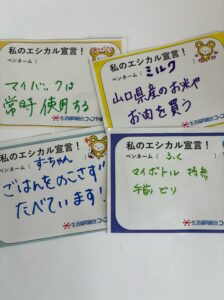 私のエシカル宣言!
ペンネーム(
マイバックは
常時使用する
生活協同組合コープやまぐち
私のエシカル宣言!
ペンネーム( ミルク
山口県産のお米や
お肉を買う
生活協同組合
私のエシカル宣言!
ペンネーム( すーちゃん
ごはんをのこさず
たべています!
生活協同組合コープ
私のエシカル宣言!
ペンネーム( ふく )
マイボトル持参
手前どり
生活協同組合コープやまぐち